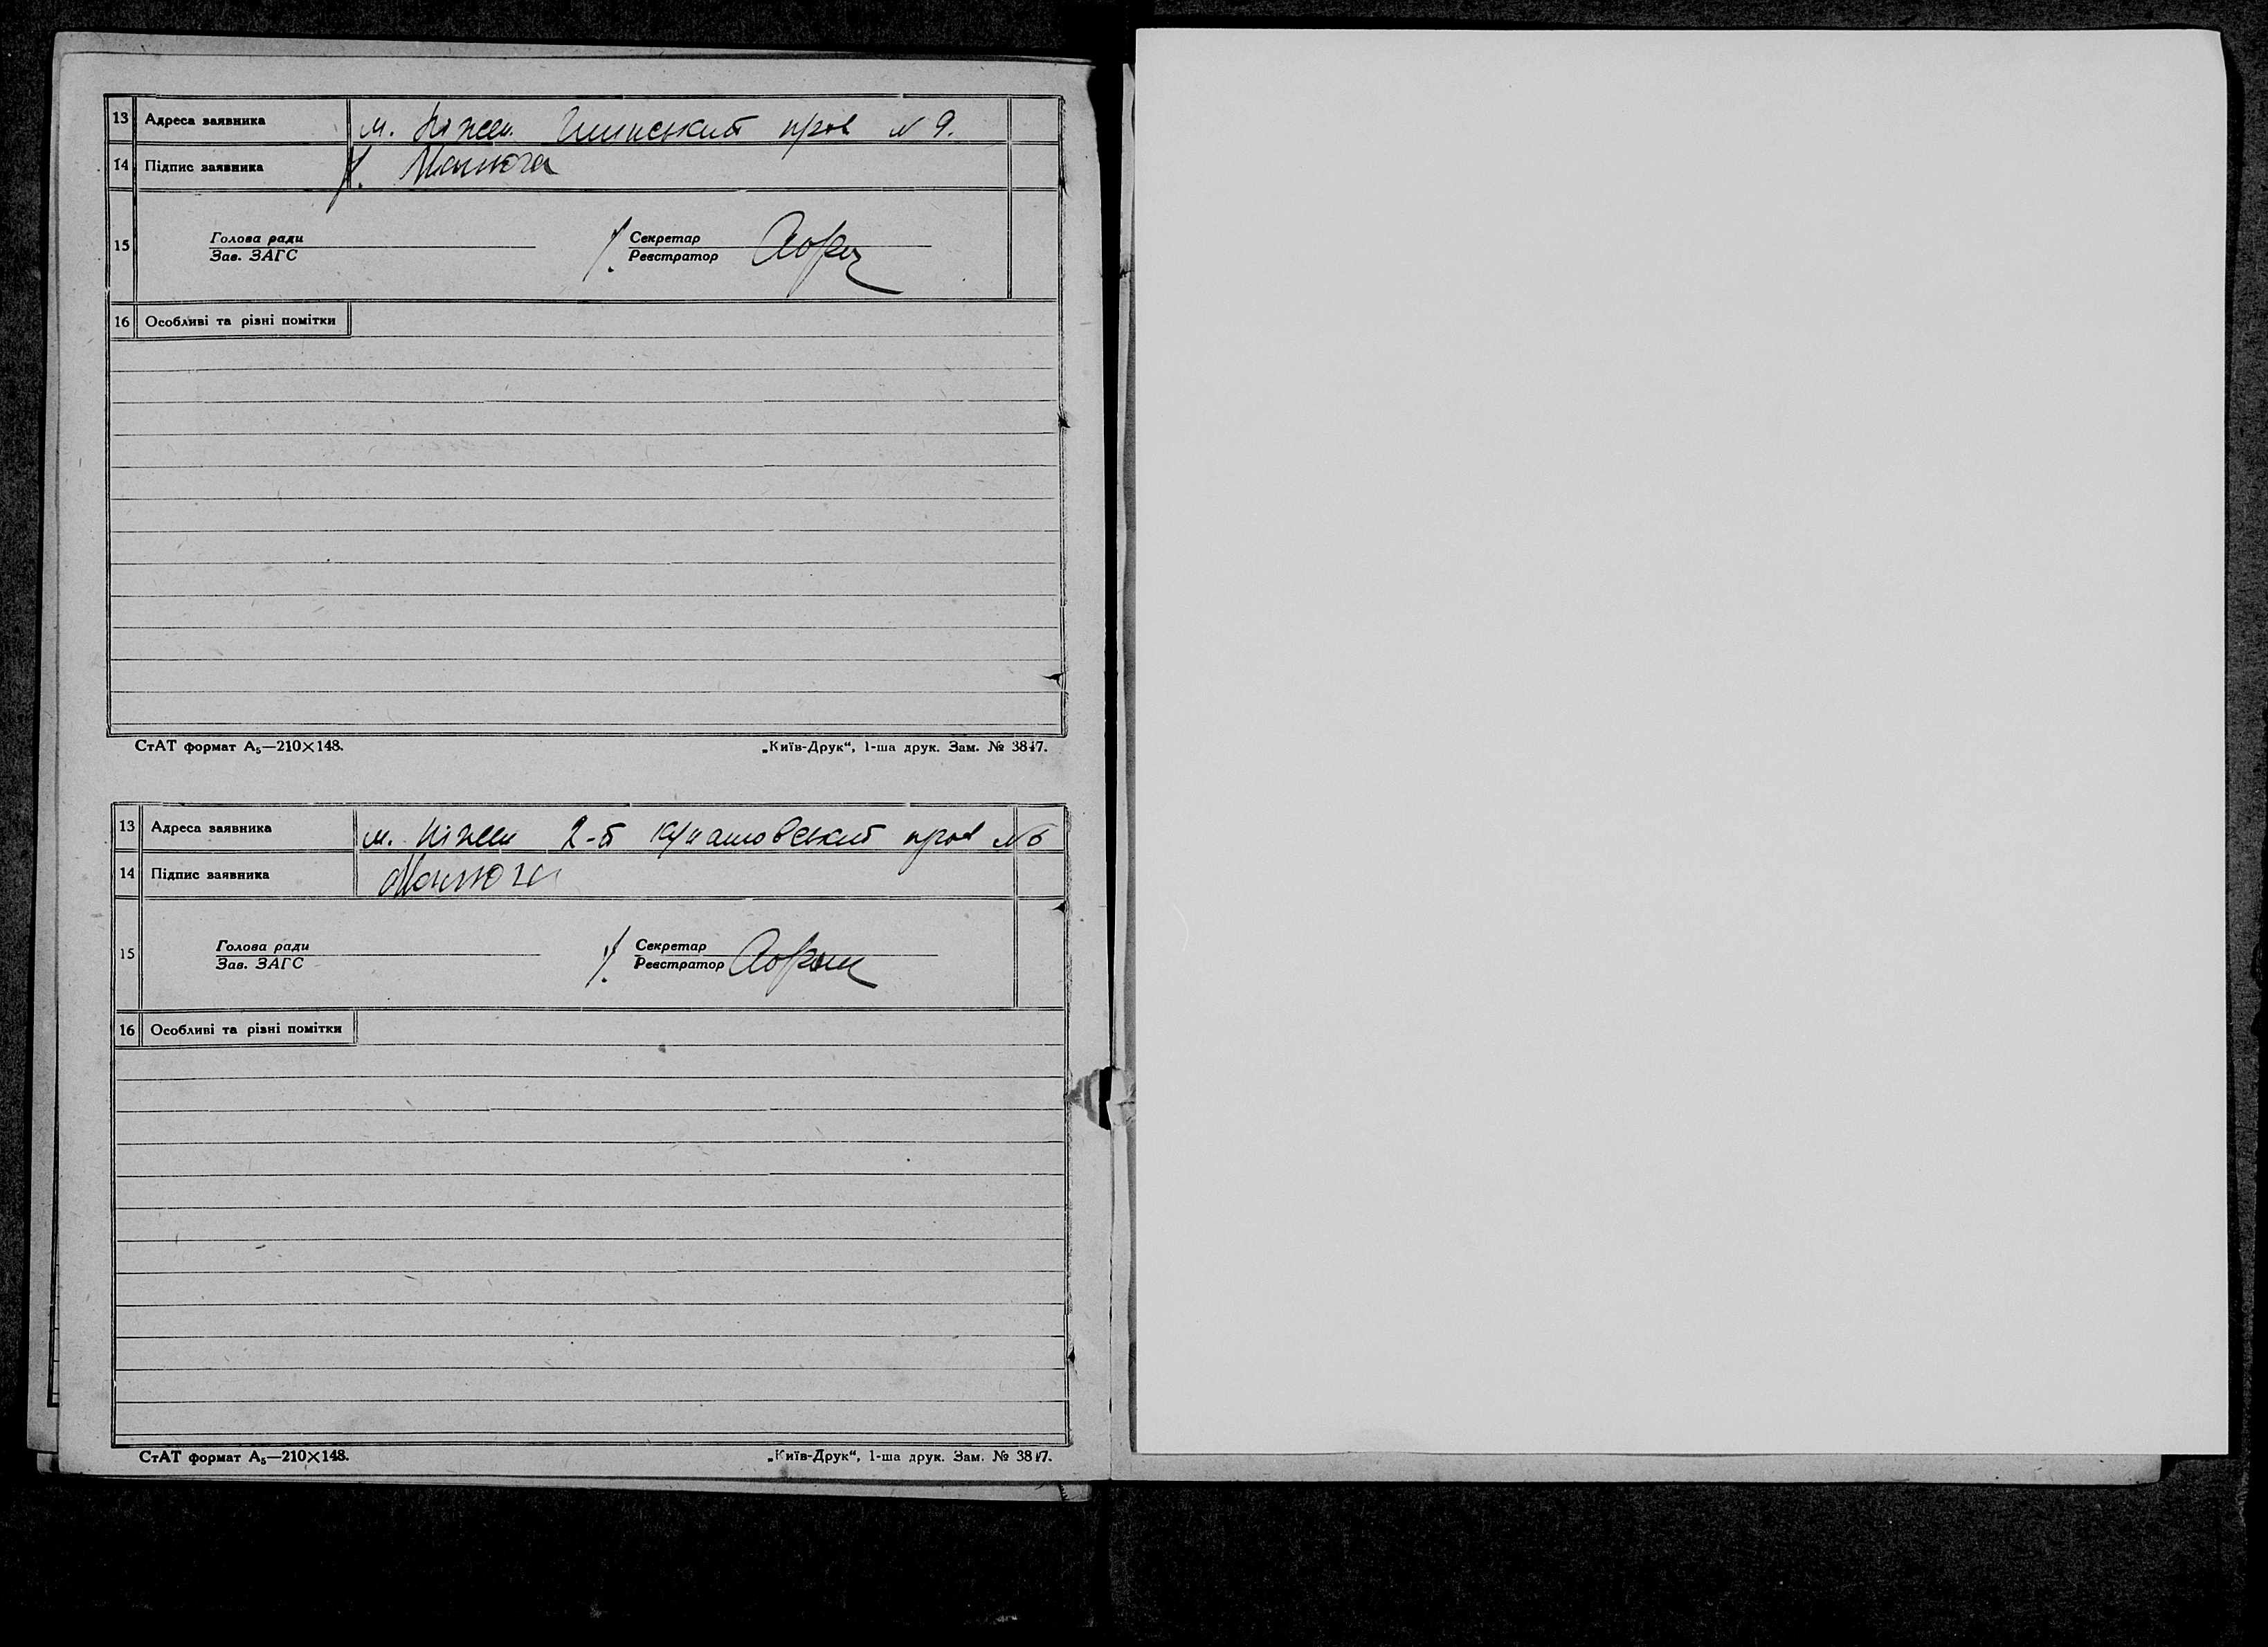 13 Адреса заявника м. Ніжен пров № 9.
14 Підпис заявника
15 Голова ради Секретар
Зав. ЗАГС Реєстратор
16 Особливі та різні помітки
СтАТ формат А₅—210×148. „Київ-Друк“, 1-ша друк. Зам. № 3847.
13 Адреса заявника м. Ніжен 2-й пров №6
14 Підпис заявника
15 Голова ради Секретар
Зав. ЗАГС Реєстратор
16 Особливі та різні помітки
СтАТ формат А₅—210×148. „Київ-Друк“, 1-ша друк. Зам. № 3847.